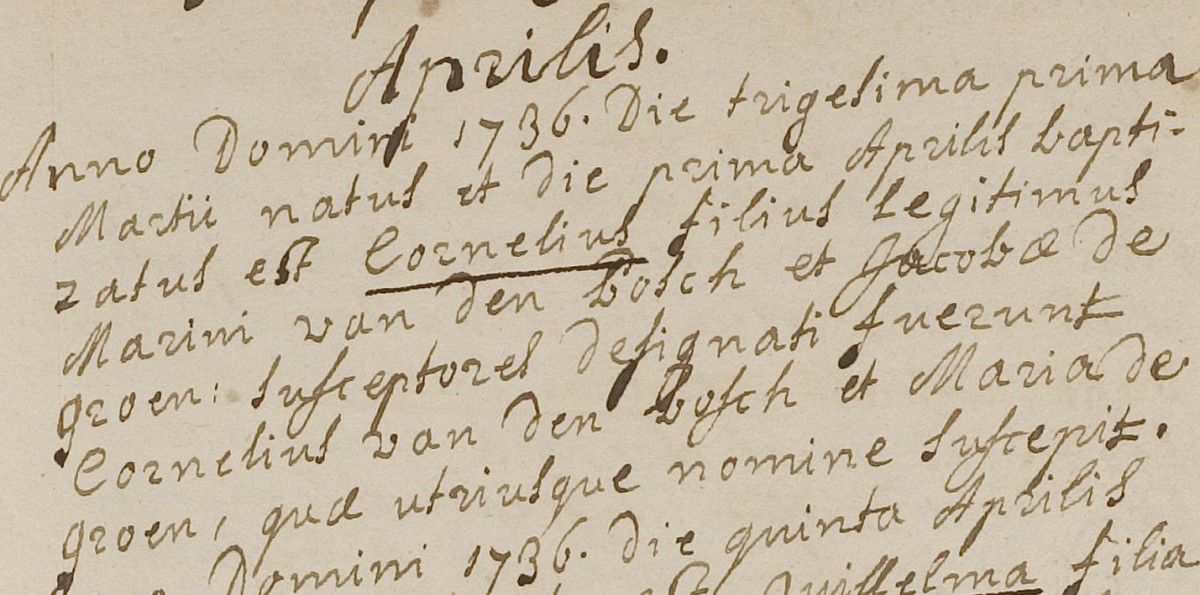 Aprilis.
Anno Domini 1736. Die trigesima prima
Martii natus et die prima Aprilis bapti-
zatus est Cornelius filius legitimus
Marini van den bosch et Jacobæ de
groen: susceptores designati fuerunt
Cornelius van den bosch et Maria de
groen, quæ utriusque nomine suscepit.
Domini 1736. Die quinta Aprilis
est Guillelma filia